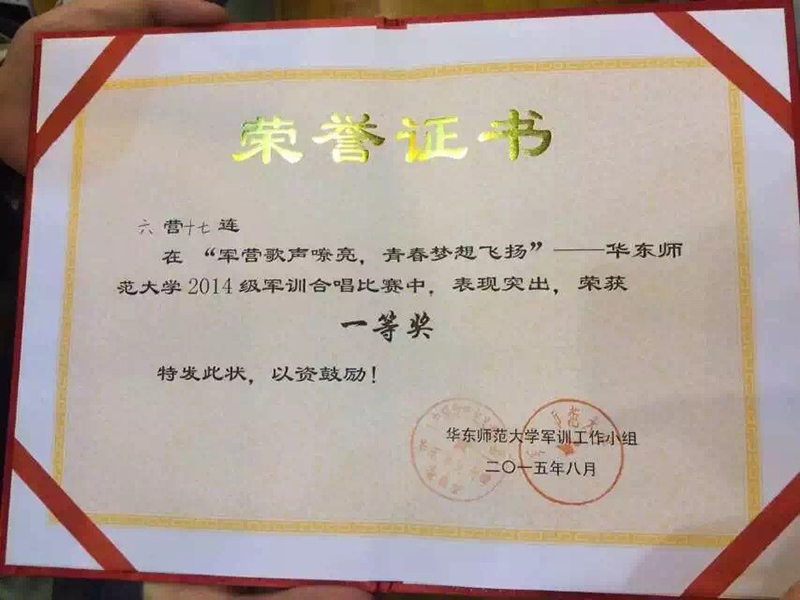 荣誉证书
六营十七连
在“军营歌声嘹亮，青春梦想飞扬”——华东师
范大学2014级军训合唱比赛中，表现突出，荣获
一等奖
特发此状，以资鼓励！
华东师范大学军训工作小组
二〇一五年八月